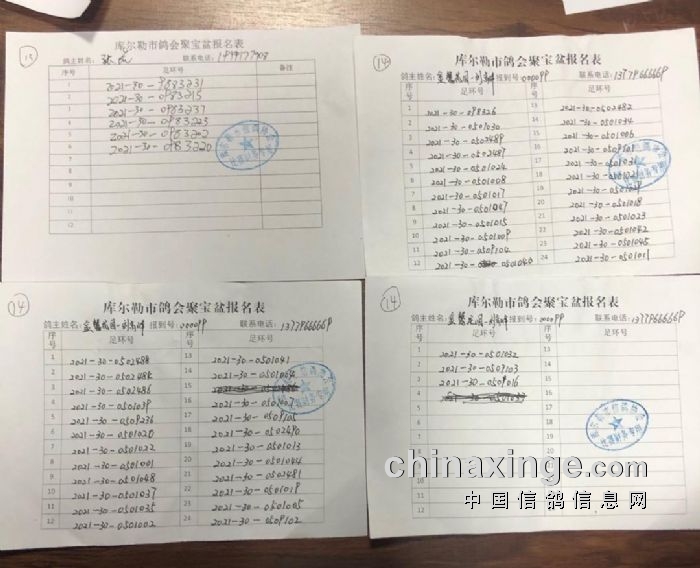 13
库尔勒市鸽会聚宝盆报名表
鸽主姓名: 联系电话:
序号 足环号 备注
1 2021-30-0983231
2 2021-30-0983215
3 2021-30-0983237
4 2021-30-0983223
5 2021-30-0983202
6 2021-30-0983220
7
8
9
10
11
12
14
库尔勒市鸽会聚宝盆报名表
鸽主姓名: 报到号:000099 联系电话:13779666669
序号 足环号 序号 足环号
1 2021-30-098326 13 2021-30-0502482
2 2021-30-0501030 14 2021-30-0501034
3 2021-30-0502489 15 2021-30-0501006
4 2021-30-0502487 16
5 2021-30-0501024 17
6 2021-30-0501008 18
7 2021-30-0501017 19
8 2021-30-0501047 20 2021-30-0501018
9 2021-30-0501015 21 2021-30-0501023
10 2021-30-0501009 22 2021-30-0501042
11 2021-30-0509104 23 2021-30-0501045
12 24 2021-30-0501011
14
库尔勒市鸽会聚宝盆报名表
鸽主姓名: 报到号:000099 联系电话:13779666669
序号 足环号 序号 足环号
1 13 2021-30-0501041
2 14
3 2021-30-0502486 15
4 2021-30-0501039 16
5 2021-30-0509236 17 2021-30-0509105
6 2021-30-0501020 18 2021-30-0502490
7 2021-30-0501022 19 2021-30-0501013
8 2021-30-0501001 20 2021-30-0501044
9 2021-30-0501048 21 2021-30-0502481
10 2021-30-0501037 22 2021-30-0501019
11 2021-30-0501035 23 2021-30-0501005
12 2021-30-0501002 24 2021-30-0509102
14
库尔勒市鸽会聚宝盆报名表
鸽主姓名: 报到号:000099 联系电话:13779666669
序号 足环号 序号 足环号
1 2021-30-0501032 13
2 2021-30-0509103 14
3 2021-30-0509016 15
4 16
5 17
6 18
7 19
8 20
9 21
10
11
12
chinaxinge.com
中国信鸽信息网